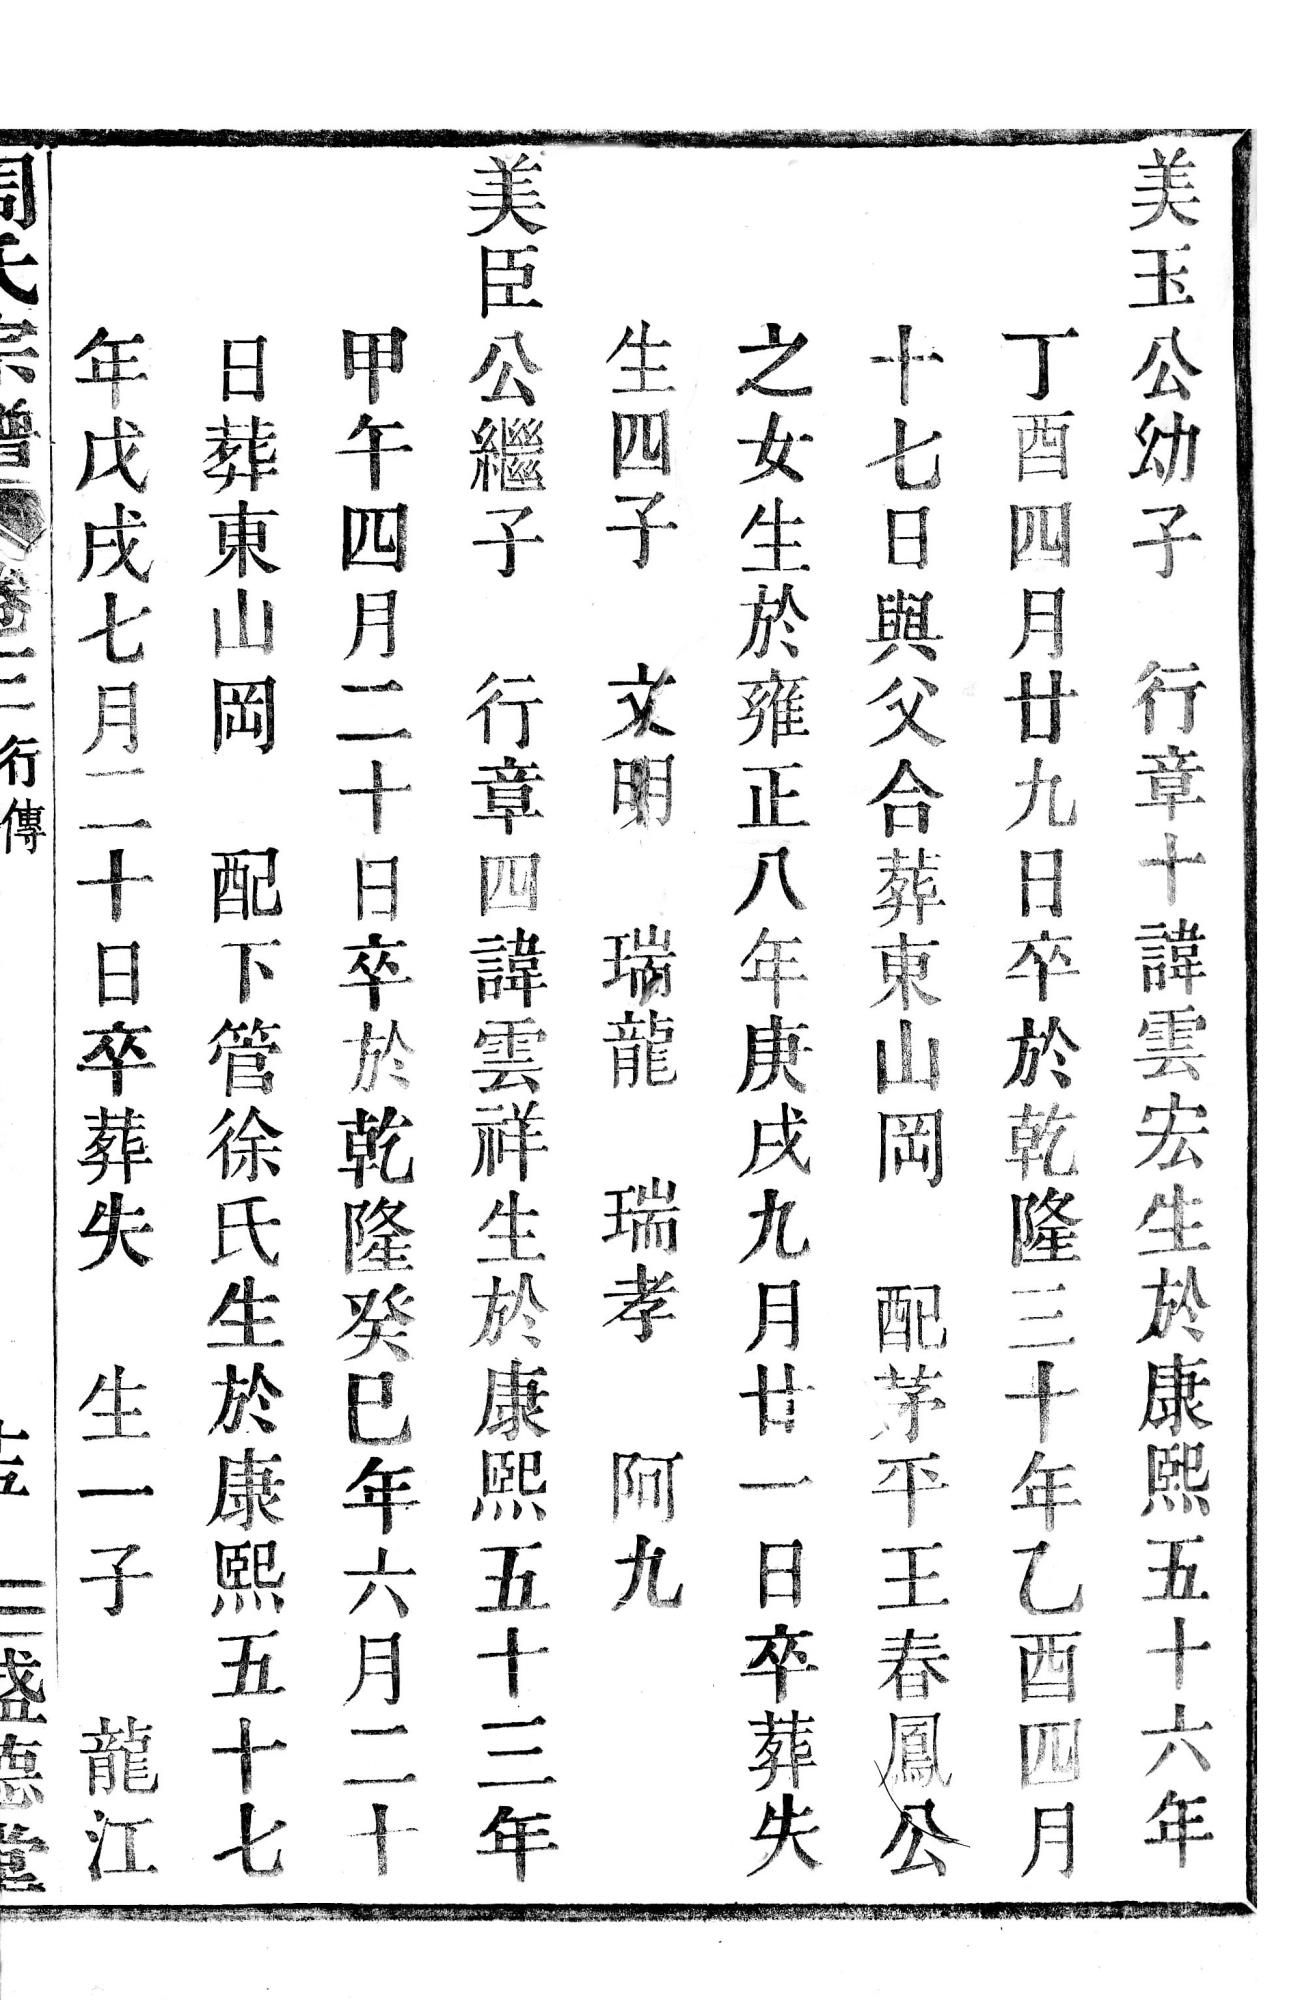 美玉公幼子　行章十諱雲宏生於康熙五十六年
丁酉四月廿九日卒於乾隆三十年乙酉四月
十七日與父合葬東山岡　配茅平王春鳳公
之女生於雍正八年庚戌九月廿一日卒葬失
生四子　文明　瑞龍　瑞孝　阿九
美臣公繼子　行章四諱雲祥生於康熙五十三年
甲午四月二十日卒於乾隆癸巳年六月二十
日葬東山岡　配下管徐氏生於康熙五十七
年戊戌七月二十日卒葬失　生一子　龍江
周氏宗譜　卷二　行傳　十五　盛德堂